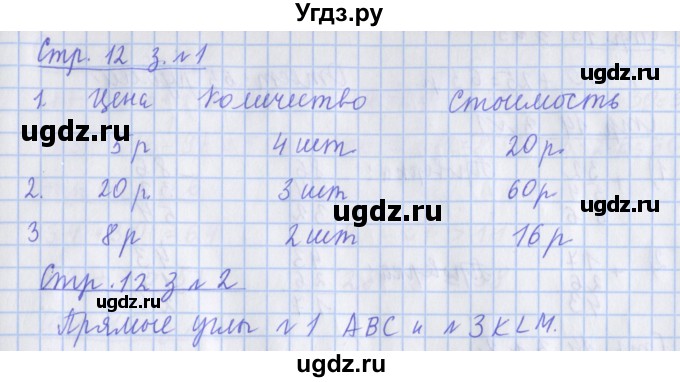 Угдз.ру
Стр. 12 з. №1
1. Цена Количество Стоимость
5 р 4 шт 20 р.
2. 20 р. 3 шт 60 р
3 8 р 2 шт 16 р
Стр. 12 з № 2
Прямые углы №1 ABC и №3 KLM.
ugdz.ru
ugdz.ru
ugdz.ru
ugdz.ru
ugdz.ru
ugdz.ru
ugdz.ru